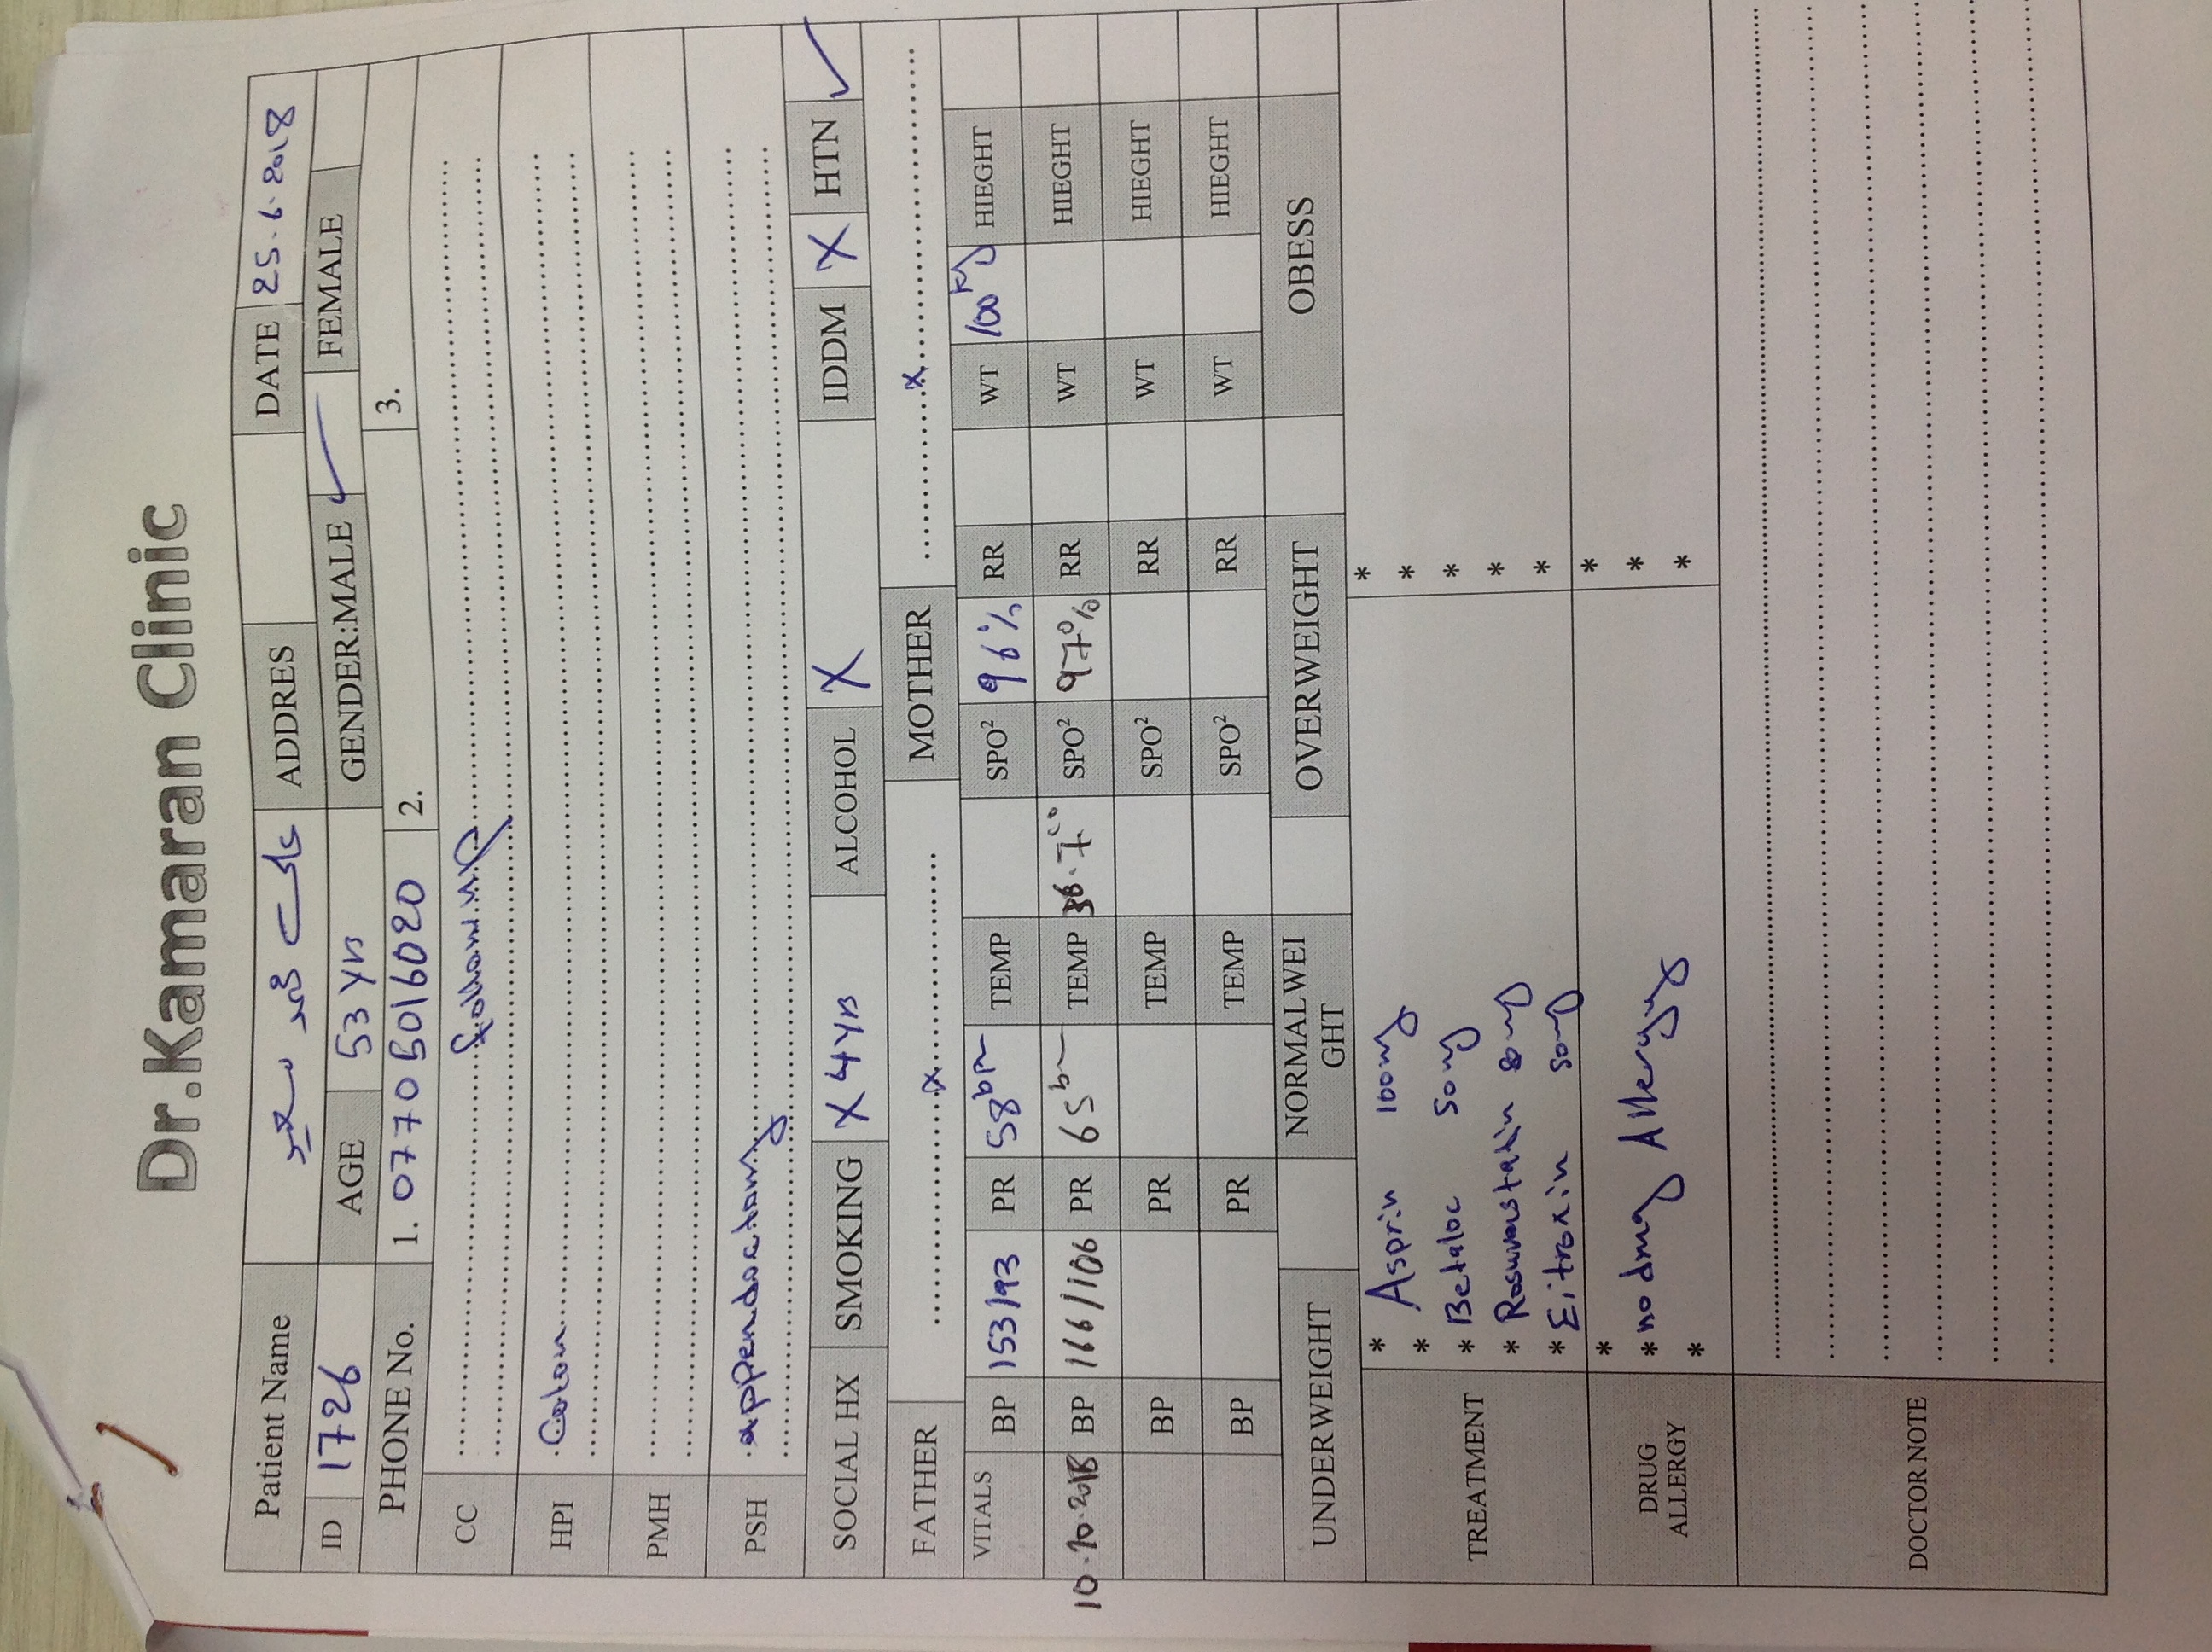 Dr.Kamaran Clinic
Patient Name ADDRES DATE 25.6.2018
ID 1726 AGE 53 yrs GENDER:MALE ✓ FEMALE
PHONE No. 1. 07705016020 2. 3.
CC follow up
HPI Colon
PMH
PSH appendoctomy
SOCIAL HX SMOKING X 4yrs ALCOHOL X IDDM X HTN ✓
FATHER x MOTHER x
VITALS BP 153/93 PR 58bpm TEMP SPO² 96% RR WT 100kg HIEGHT
10.10.2018 BP 166/106 PR 65bm TEMP 36.7c° SPO² 97% RR WT HIEGHT
BP PR TEMP SPO² RR WT HIEGHT
BP PR TEMP SPO² RR WT HIEGHT
UNDERWEIGHT NORMALWEI
GHT OVERWEIGHT OBESS
TREATMENT
* Asprin 100mg *
* *
* Betaloc 50mg *
* Rosuvastatin mg *
* Eltroxin 50mg *
DRUG
ALLERGY
* *
* no drug Allergy *
* *
DOCTOR NOTE